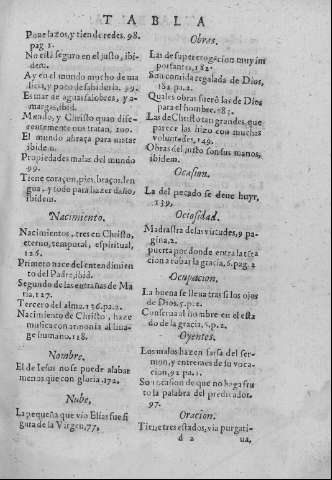 TABLA
Pone lazos, y tiende redes. 98.
pag 1.
No està seguro en el justo, ibi-
dem.
Ay en el mundo mucho de ma
licia, y poco de sabiduria. 99.
Es mar de aguas salobres, y a-
margas, ibid.
Mundo, y Christo quan dife-
rentemente nos tratan, 200.
El mundo abraça para matar
ibidem.
Propiedades malas del mundo
99.
Tiene coraçon, pies, braços, len
gua, y todo para hazer daño,
ibidem.
Nacimiento.
Nacimientos, tres en Christo,
eterno, temporal, espiritual,
126.
Primero nace del entendimien
to del Padre, ibid.
Segundo de las entrañas de Ma
ria, 127.
Tercero del alma. 136. pa. 2.
Nacimiento de Christo, haze
musica con armonia al lina-
ge humano. 128.
Nombre.
El de Iesus no se puede alabar
menos que con gloria, 172.
Nube,
La pequeña que vio Elias fue fi
gura de la Virgen, 77,
Obras.
Las de supererogacion muy im
portantes, 182.
Son comida regalada de Dios,
182 pa. 2.
Quales obras fuerõ las de Dios
para el hombre. 183.
Las de Christo tan grandes, que
parece las hizo con muchas
voluntades, 149.
Obras del justo son sus manos,
ibidem.
Ocasion.
La del pecado se deue huyr,
139.
Ociosidad.
Madrastra de las virtudes, 9 pa
gina, 2.
puerta por donde entra la tẽta
cion a robar la gracia, 6. pag. 2
Ocupacion.
La buena se lleua tras si los ojos
de Dios, 5. p. 2.
Conserua al hombre en el esta
do de la gracia, 5. p. 2.
Oyentes.
Los malos hazen farsa del ser-
mon, y entremes de su voca-
cion, 92 pa. 1.
Son ocasion de que no haga fru
to la palabra del predicador,
97.
Oracion.
Tiene tres estados, via purgati-
d 2
ua,